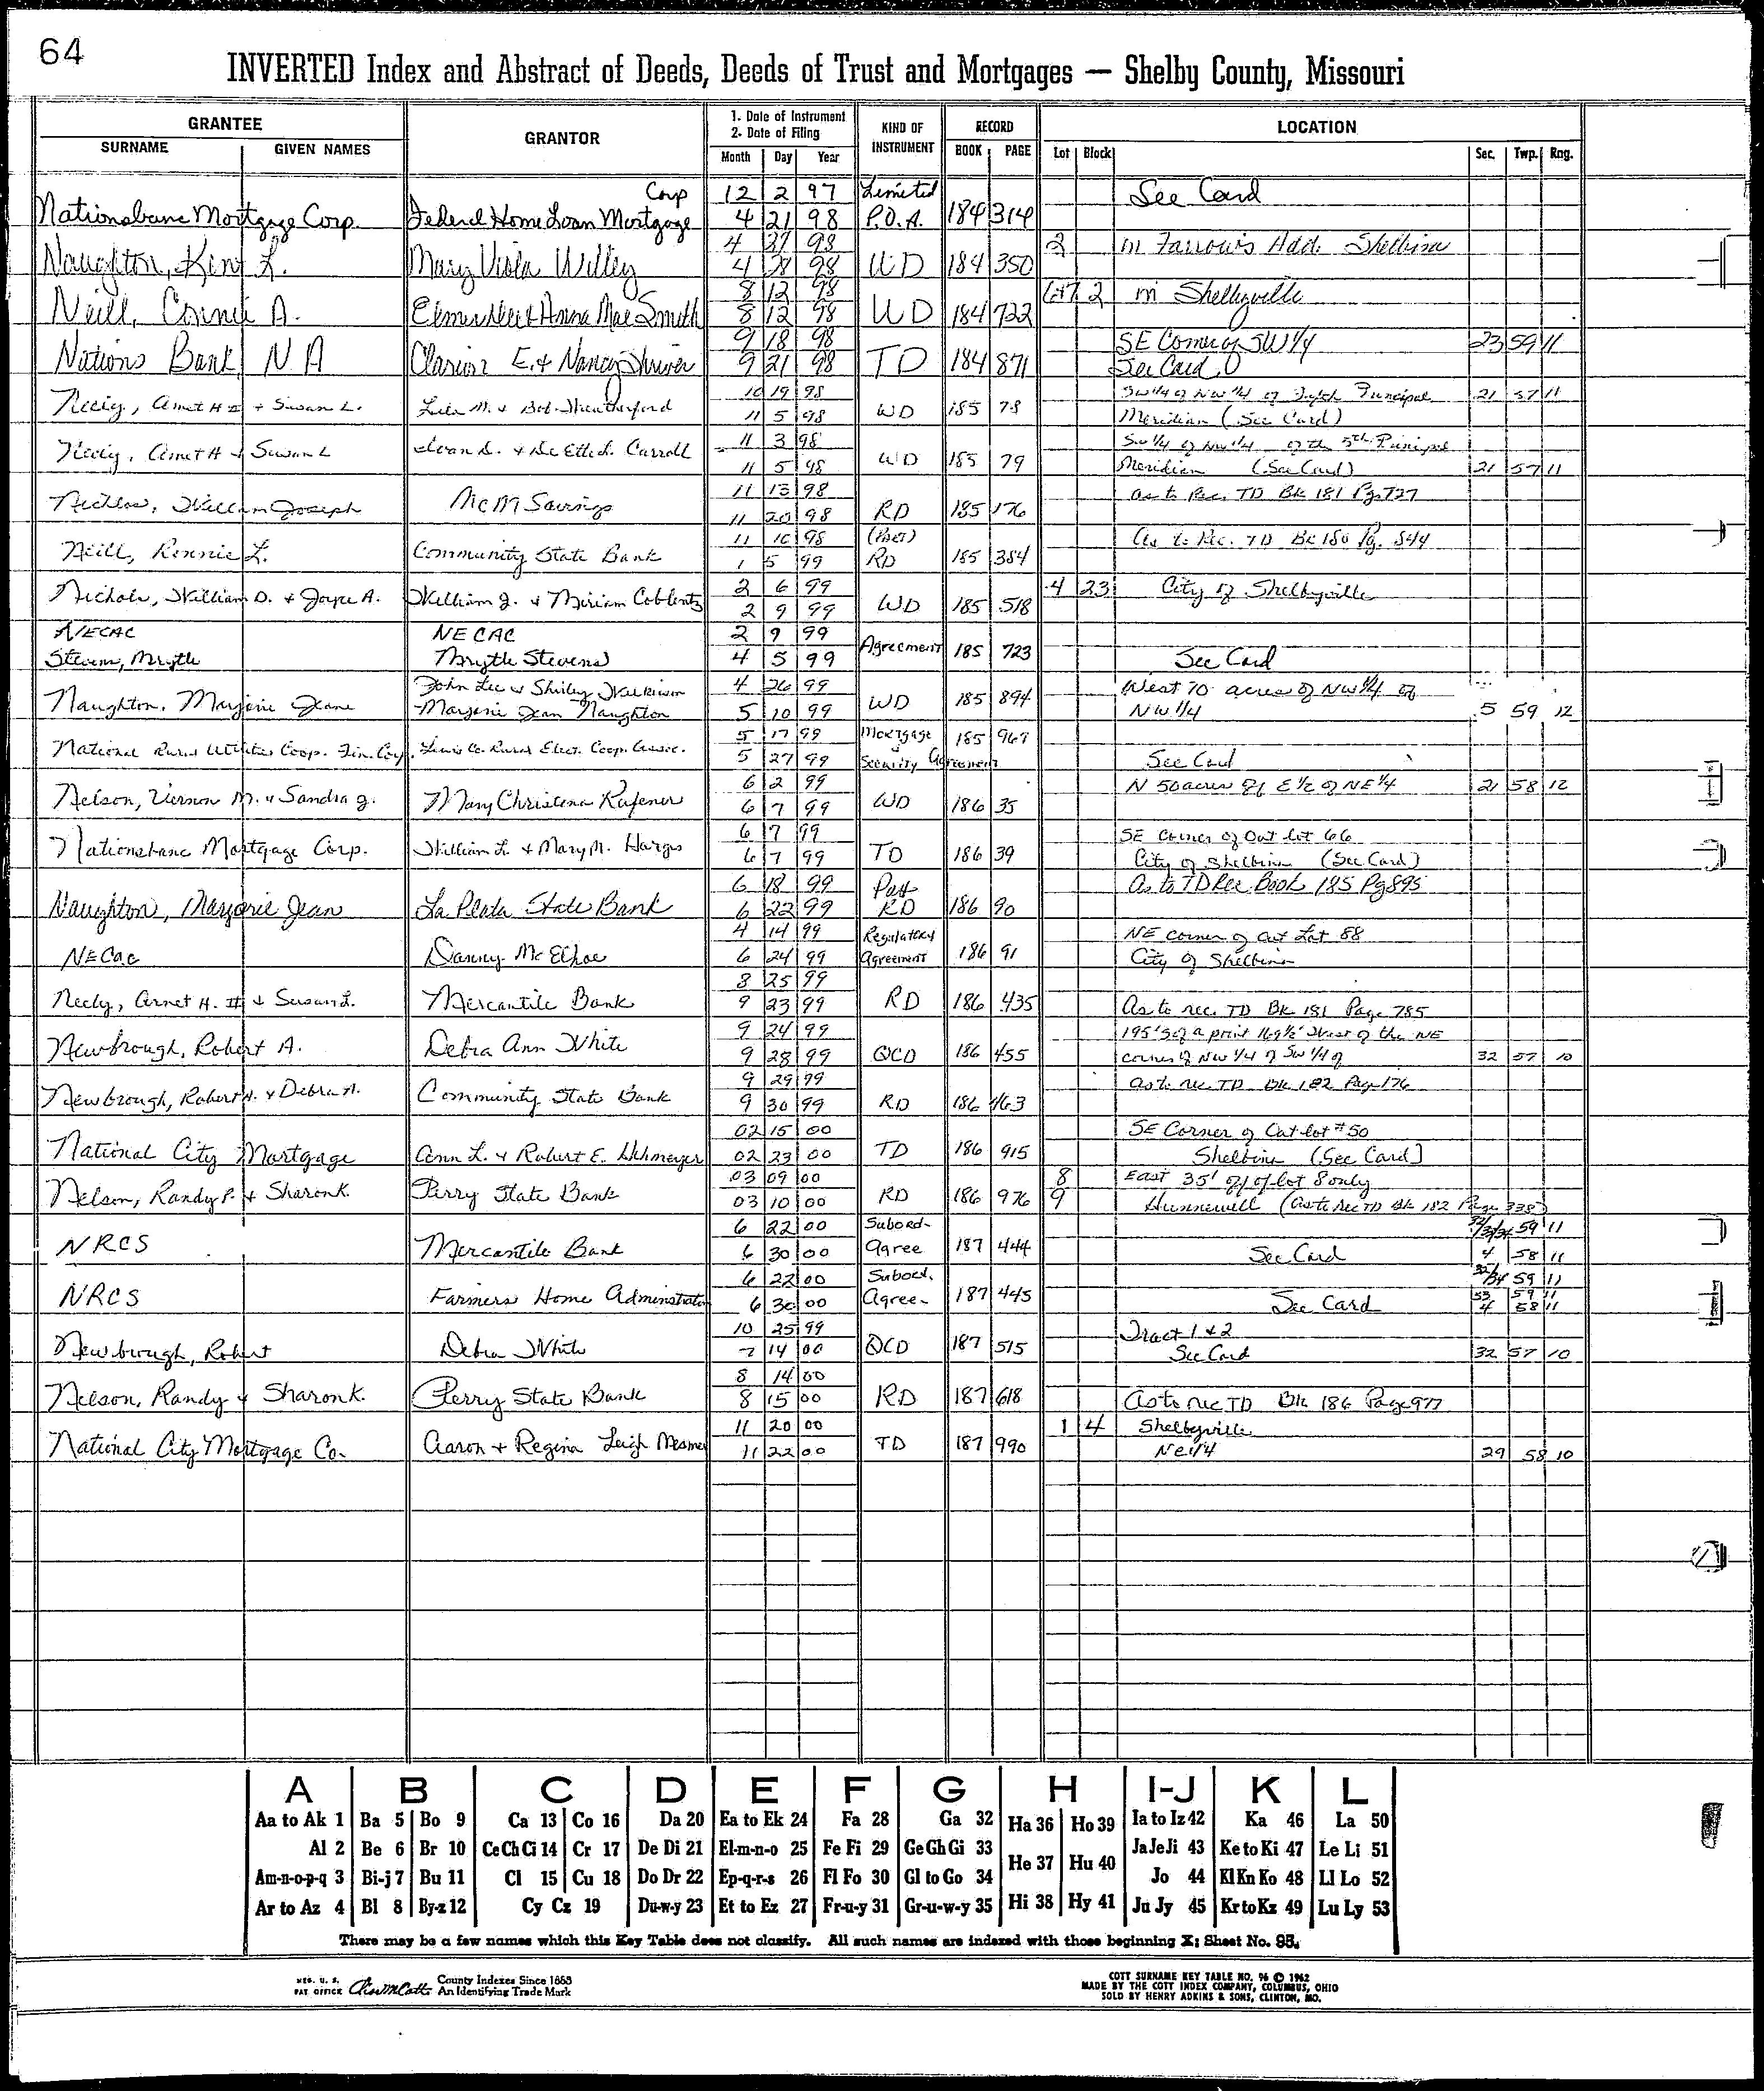 64
INVERTED Index and Abstract of Deeds, Deeds of Trust and Mortgages — Shelby County, Missouri
GRANTEE
SURNAME GIVEN NAMES
GRANTOR
1. Date of Instrument
2. Date of Filing
Month Day Year
KIND OF
INSTRUMENT
RECORD
BOOK PAGE
LOCATION
Lot Block Sec. Twp. Rng.
Corp 12 2 97 Limited See Card
Nationsbanc Mortgage Corp. Federal Home Loan Mortgage 4 21 98 P.O.A. 184 314
4 98 2 in Farrow's Add. Shelbina
Naughton, Kent L. Mary Viola Willey 4 28 98 WD 184 350
8 12 98 2 in Shelbyville
Neill, Connie A. Anna Mae Smith 8 12 98 WD 184 722
9 18 98 SE Corner of SW 1/4 23 59 11
Nations Bank NA E. & Nancy Shriver 9 21 98 TD 184 871 See Card
10 19 98 SW 1/4 of NW 1/4 of Fifth Principal 21 57 11
Neely, Arnet H II & Susan L. 11 5 98 WD 185 78 Meridian (See Card)
11 3 98 SW 1/4 of NW 1/4 of the 5th Principal
Neely, Arnet H & Susan L Carroll 11 5 98 WD 185 79 Meridian (See Card) 21 57 11
11 13 98 as to Rec. TD Bk 181 Pg 727
William Joseph MCM Savings 11 20 98 RD 185 176
11 16 98 (Part) As to Rec. TD Bk 180 Pg. 844
Neill, Ronnie L. Community State Bank 1 5 99 RD 185 384
2 6 99 4 23 City of Shelbyville
Nichols, William D. & Joyce A. William J. & Miriam Coblentz 2 9 99 WD 185 518
NECAC NECAC 2 9 99 Agreement 185 723
Stevens, Myrtle Myrtle Stevens 4 5 99 See Card
John Lee & Shirley Wilkinson 4 26 99 West 70 acres of NW 1/4 of
Naughton, Marjorie Jean Marjorie Jean Naughton 5 10 99 WD 185 894 NW 1/4 5 59 12
5 17 99 Mortgage 185 969
National Rural Utilities Coop. Fin. Corp. Lewis Co. Rural Elect. Coop. Assoc. 5 27 99 Security Agreement See Card
6 2 99 N 50 acres of E 1/2 of NE 1/4 21 58 12
Nelson, Vernon M. & Sandra J. Mary Christena 6 7 99 WD 186 35
6 7 99 SE Corner of Out lot 66
Nationsbanc Mortgage Corp. William L. & Mary M. 6 7 99 TD 186 39 City of Shelbina (See Card)
6 18 99 Part As to TD Rec Book 185 Pg 895
Naughton, Marjorie Jean La Plata State Bank 6 22 99 RD 186 90
4 14 99 Regulatory NE corner of Out Lot 88
NECAC Danny McElhoe 6 24 99 Agreement 186 91 City of Shelbina
8 25 99
Neely, Arnet H. II & Susan L. Mercantile Bank 9 23 99 RD 186 435 As to rec. TD Bk 181 Page 785
9 24 99 195' S of a point 169½' West of the NE
Newbrough, Robert A. Debra Ann White 9 28 99 QCD 186 455 corner of NW 1/4 of SW 1/4 of 32 57 10
9 29 99 as to rec TD Bk 182 Page 176
Newbrough, Robert A. & Debra A. Community State Bank 9 30 99 RD 186 463
02 15 00 SE Corner of Out lot #50
National City Mortgage Ann L. & Robert E. 02 23 00 TD 186 915 Shelbina (See Card)
03 09 00 8 East 35' of lot 8 only
Nelson, Randy P. & Sharon K. Perry State Bank 03 10 00 RD 186 976 9 Hunnewell (as to rec TD Bk 182 Page 338)
6 22 00 Subord- 59 11
NRCS Mercantile Bank 6 30 00 Agree 187 444 See Card 4 58 11
6 22 00 Subord. 59 11
NRCS Farmers Home Administration 6 30 00 Agree- 187 445 See Card 33 59 11
4 58 11
10 25 99 Tract 1 & 2
Newbrough, Robert Debra White 7 14 00 QCD 187 515 See Card 32 57 10
8 14 00
Nelson, Randy & Sharon K. Perry State Bank 8 15 00 RD 187 618 As to rec TD Bk 186 Page 977
11 20 00 1 4 Shelbyville
National City Mortgage Co. Aaron & Regina Leigh Mesmer 11 22 00 TD 187 990 NE 1/4 29 58 10
A B C D E F G H I-J K L
Aa to Ak 1 Ba 5 Bo 9 Ca 13 Co 16 Da 20 Ea to Ek 24 Fa 28 Ga 32 Ha 36 Ho 39 Ia to Iz 42 Ka 46 La 50
Al 2 Be 6 Br 10 Ce Ch Ci 14 Cr 17 De Di 21 El-m-n-o 25 Fe Fi 29 Ge Gh Gi 33 He 37 Hu 40 Ja Je Ji 43 Ke to Ki 47 Le Li 51
Am-n-o-p-q 3 Bi-j 7 Bu 11 Cl 15 Cu 18 Do Dr 22 Ep-q-r-s 26 Fl Fo 30 Gl to Go 34 Jo 44 Kl Kn Ko 48 Ll Lo 52
Ar to Az 4 Bl 8 By-z 12 Cy Cz 19 Du-w-y 23 Et to Ez 27 Fr-u-y 31 Gr-u-w-y 35 Hi 38 Hy 41 Ju Jy 45 Kr to Kz 49 Lu Ly 53
There may be a few names which this Key Table does not classify. All such names are indexed with those beginning X; Sheet No. 95.
REG. U. S.
PAT OFFICE
County Indexes Since 1888
An Identifying Trade Mark
COTT SURNAME KEY TABLE NO. 96 © 1962
MADE BY THE COTT INDEX COMPANY, COLUMBUS, OHIO
SOLD BY HENRY ADKINS & SONS, CLINTON, MO.